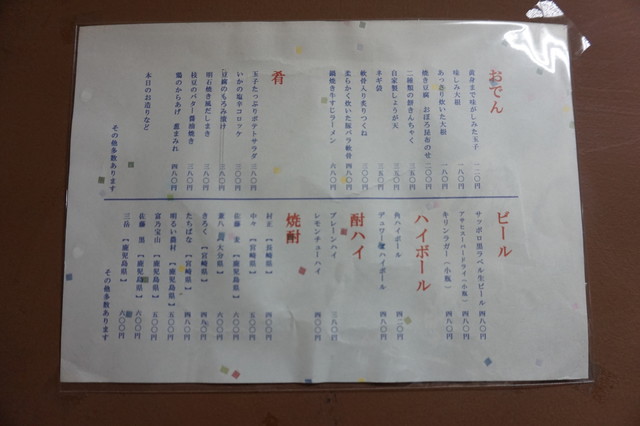 おでん
黄身まで味がしみた玉子 一二〇円
味しみ大根 一八〇円
あっさり炊いた大根 一八〇円
焼き豆腐 おぼろ昆布のせ 二〇〇円
二種類の餅きんちゃく 二五〇円
自家製しょうが天 三五〇円
ネギ袋 三五〇円
軟骨入り炙りつくね 三〇〇円
柔らかく炊いた豚バラ軟骨 四八〇円
鍋焼き牛すじラーメン 六八〇円
肴
玉子たっぷりポテトサラダ 三八〇円
いかの塩辛コロッケ 三〇〇円
豆腐のもろみ漬け 三〇〇円
明石焼き風だしまき 三八〇円
枝豆のバター醤油焼き 三八〇円
鶏のからあげ 葱まみれ 四八〇円
本日のお造りなど
その他多数あります
ビール
サッポロ黒ラベル生ビール 四八〇円
アサヒスーパードライ（小瓶） 四八〇円
キリンラガー（小瓶） 四八〇円
ハイボール
角ハイボール 四二〇円
デュワーズハイボール 四八〇円
酎ハイ
プレーンハイ 三八〇円
レモンチューハイ 四〇〇円
焼酎
村正 【長崎県】 四〇〇円
中々 【宮崎県】 五〇〇円
佐藤 麦 【鹿児島県】 六〇〇円
兼八 【大分県】 六〇〇円
きろく 【宮崎県】 四八〇円
たちばな 【宮崎県】 四八〇円
明るい農村 【鹿児島県】 五〇〇円
富乃宝山 【鹿児島県】 五〇〇円
佐藤 黒 【鹿児島県】 六〇〇円
三岳 【鹿児島県】 六〇〇円
その他多数あります